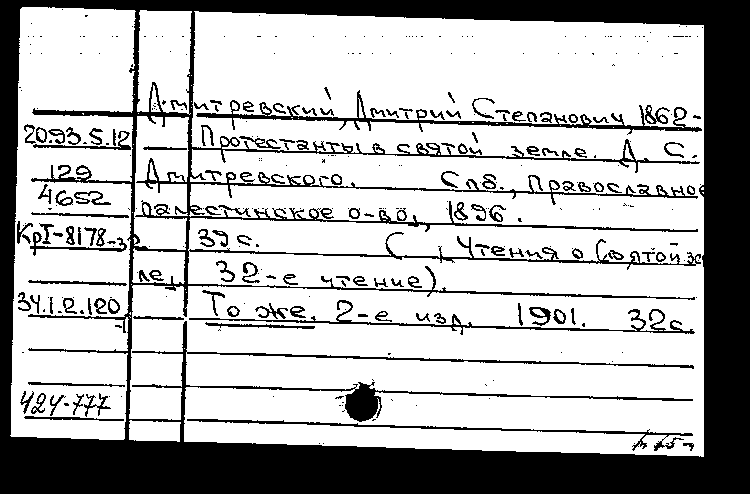 Дмитревский, Дмитрий Степанович, 1862-
20.93.5.12 Протестанты в святой земле. Д. С.
129
4652
Дмитревского. Спб., Православное
палестинское о-во, 1896.
КрI-8178-32 39 с. (Чтения о Святой зем
ле, 32-е чтение).
34.1.2.120 То же. 2-е изд. 1901. 32 с.
-1
424-777